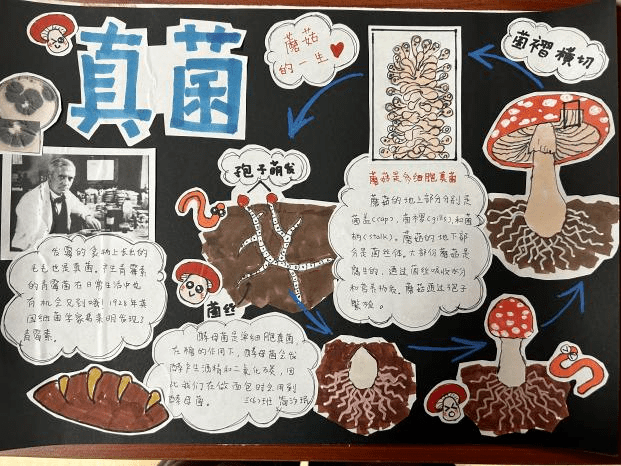 真菌
蘑菇
的一生
菌褶横切
孢子萌发
菌丝
蘑菇是多细胞真菌
蘑菇的地上部分分别是
菌盖(cap), 菌褶(gills), 和菌
柄(stalk)。蘑菇的地下部
分是菌丝体。大部份蘑菇是
腐生的, 通过菌丝吸收水分
和营养物质。蘑菇通过孢子
繁殖。
发霉的食物上长出的
毛毛也是真菌。产生青霉素
的青霉菌在日常生活中也
有机会见到哦! 1928年英
国细菌学家弗莱明发现了
青霉素。
酵母菌是单细胞真菌,
在糖的作用下, 酵母菌会发
酵产生酒精和二氧化碳, 因
此我们在做面包时会用到
酵母菌。